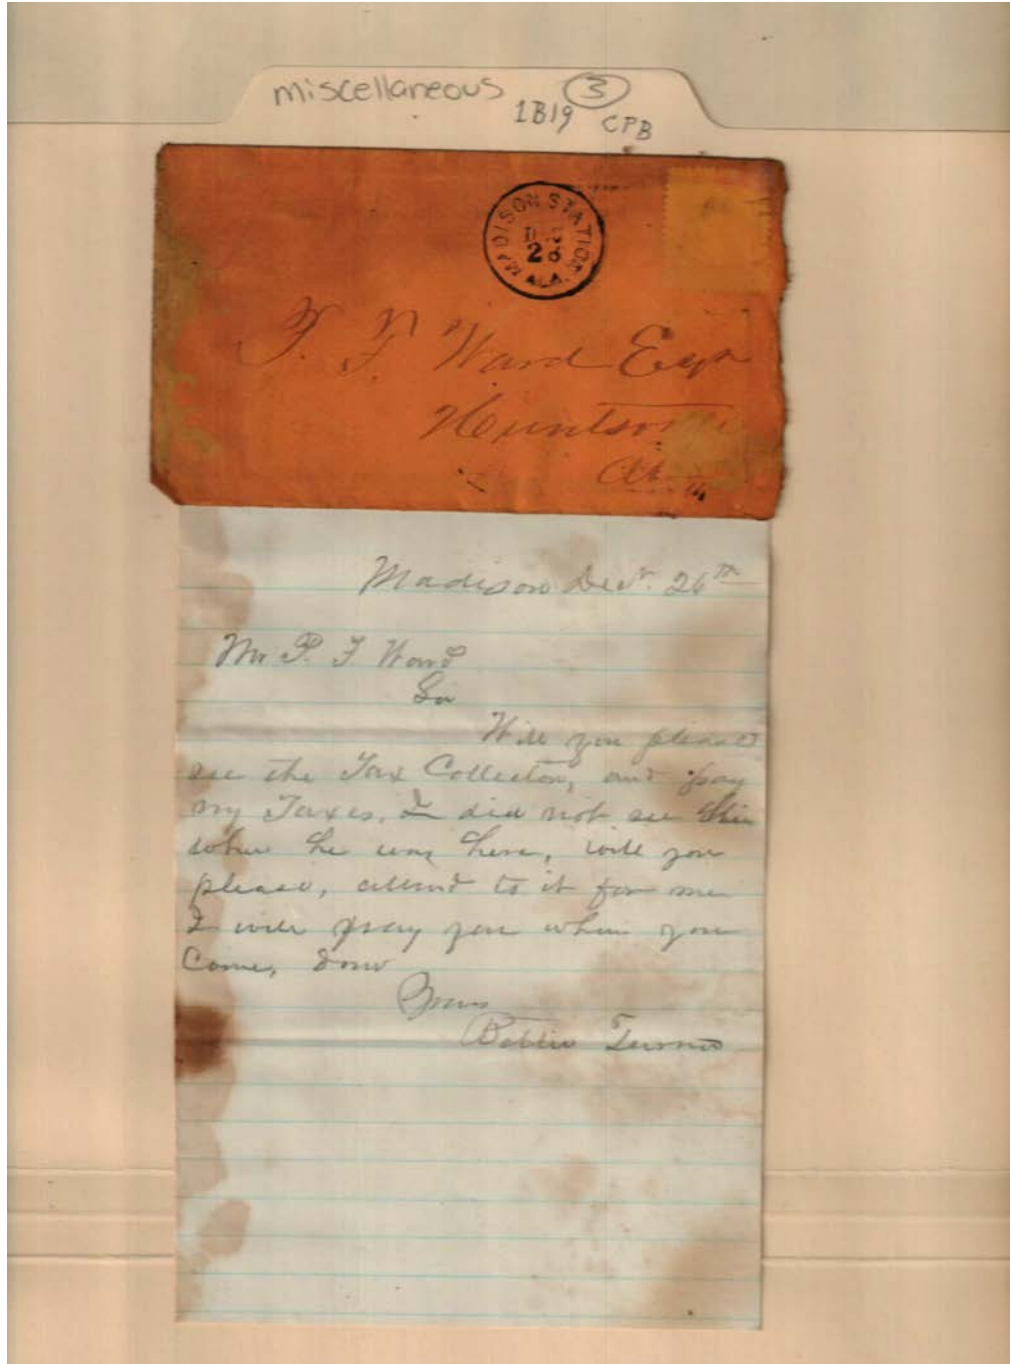 miscellaneous 3
1B19 CPB
MADISON STATION
28
ALA.
T. F. Ward Esqr
Huntsville
Madison Decr. 26th
Mr P. F. Ward
Sir
Will you please
see the Tax Collector, and pay
my Taxes, I did not see him
when he was here, will you
please, attend to it for me
I will pay you when you
Come, down
Yours
Turner